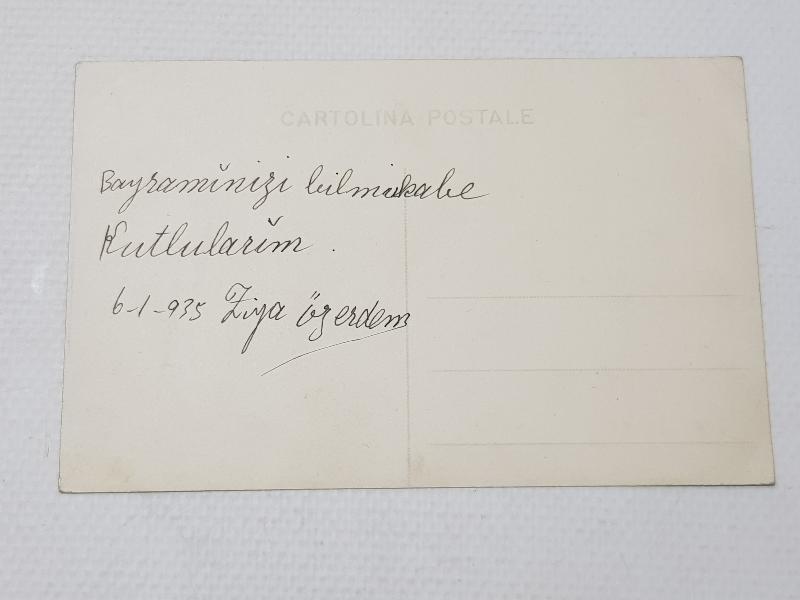 CARTOLINA POSTALE
Bayramĭnizi bilmukabe
Kutlularĭm .
6-1-935 Ziya özerdem